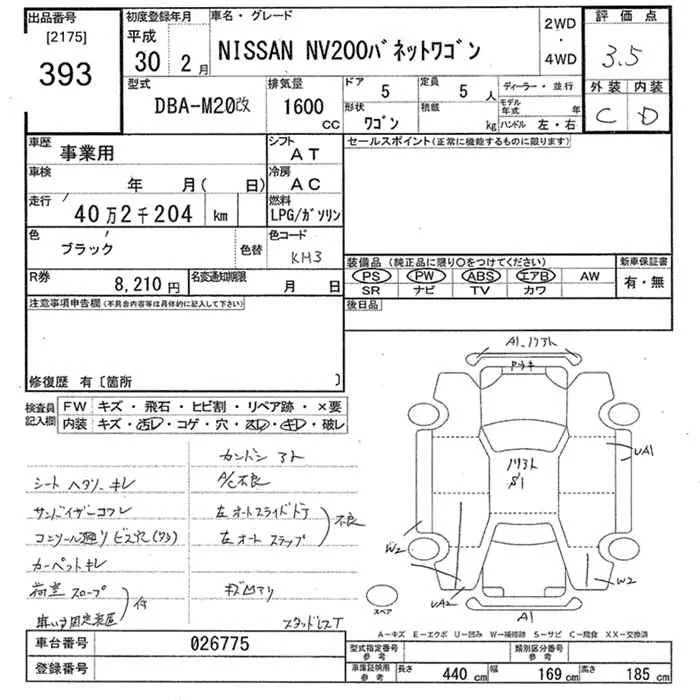 出品番号 [2175] 393
初度登録年月 平成 30 2月
車名・グレード NISSAN NV200バネットワゴン
2WD・4WD
評価点 3.5
外装 内装
C D
型式 DBA-M20改
排気量 1600 CC
ドア 5
定員 5 人
形状 ワゴン
積載 kg
ディーラー・並行
モデル年式 年
ハンドル 左・右
車歴 事業用
シフト AT
セールスポイント(正常に機能するものに限ります)
車検 年 月( 日)
冷房 AC
走行 40万2千204 km
燃料 LPG/ガソリン
色 ブラック 色替
色コード KH3
装備品(純正品に限り○をつけてください)
PS PW ABS エアB AW
SR ナビ TV カワ
新車保証書 有・無
R券 8,210円
名変通知期限 月 日
後日品
注意事項申告欄(不具合内容等は具体的に記入して下さい)
修復歴 有〔箇所 〕
検査員記入欄
FW キズ・飛石・ヒビ割・リペア跡・×要
内装 キズ・汚レ・コゲ・穴・スレ・キレ・破レ
カンバン アト
シート ヘタリ キレ
A/C不良
サンバイザーコワレ
左オートスライドドア
左オート ステップ
不良
コンソール廻り ビス穴(クタ)
カーペットキレ
荷室 スロープ
車いす固定装置
付
キズ凹アリ
スタッドレスT
A1.リアト
アッキ
リアト
S1
UA1
W2
UA2
W2
A1
スペア
A-キズ E-エクボ U-凹み W-補修跡 S-サビ C-腐食 XX-交換済
車台番号 026775
登録番号
型式指定番号 参考
類別区分番号 参考
車庫証明用 参考 長さ 440 cm 幅 169 cm 高さ 185 cm